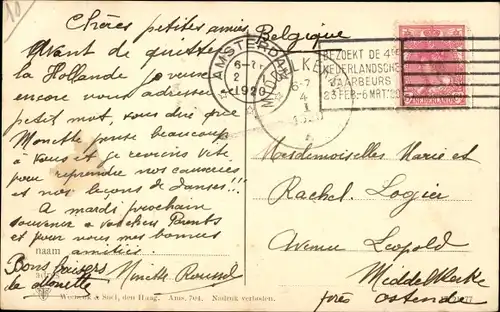 10
Chères petites amies
Belgique
Avant de quitter
la Hollande je veux
encore vous adresser
petit mot, vous dire que
Monette pense beaucoup
à vous et je reviens vite
pour reprendre nos causeries
et nos leçons de danses!!!
A mardi prochain
souvenir à vos chers Parents
et pour vous mes bonnes
naam amitiés
Bons baisers
la Monette
Ninette Roussel
AMSTERDAM
6-7
2
1920
MIDDELKERKE
6-7
4
1
1920
BEZOEKT DE 4de
NEDERLANDSCHE
JAARBEURS
23 FEB.-6 MRT. 20
NEDERLAND
5
Mesdemoiselles Marie et
Rachel Logier
Avenue Léopold
Middelkerke
près Ostende
Weenenk & Snel, den Haag. Ams. 704. Nadruk verboten.